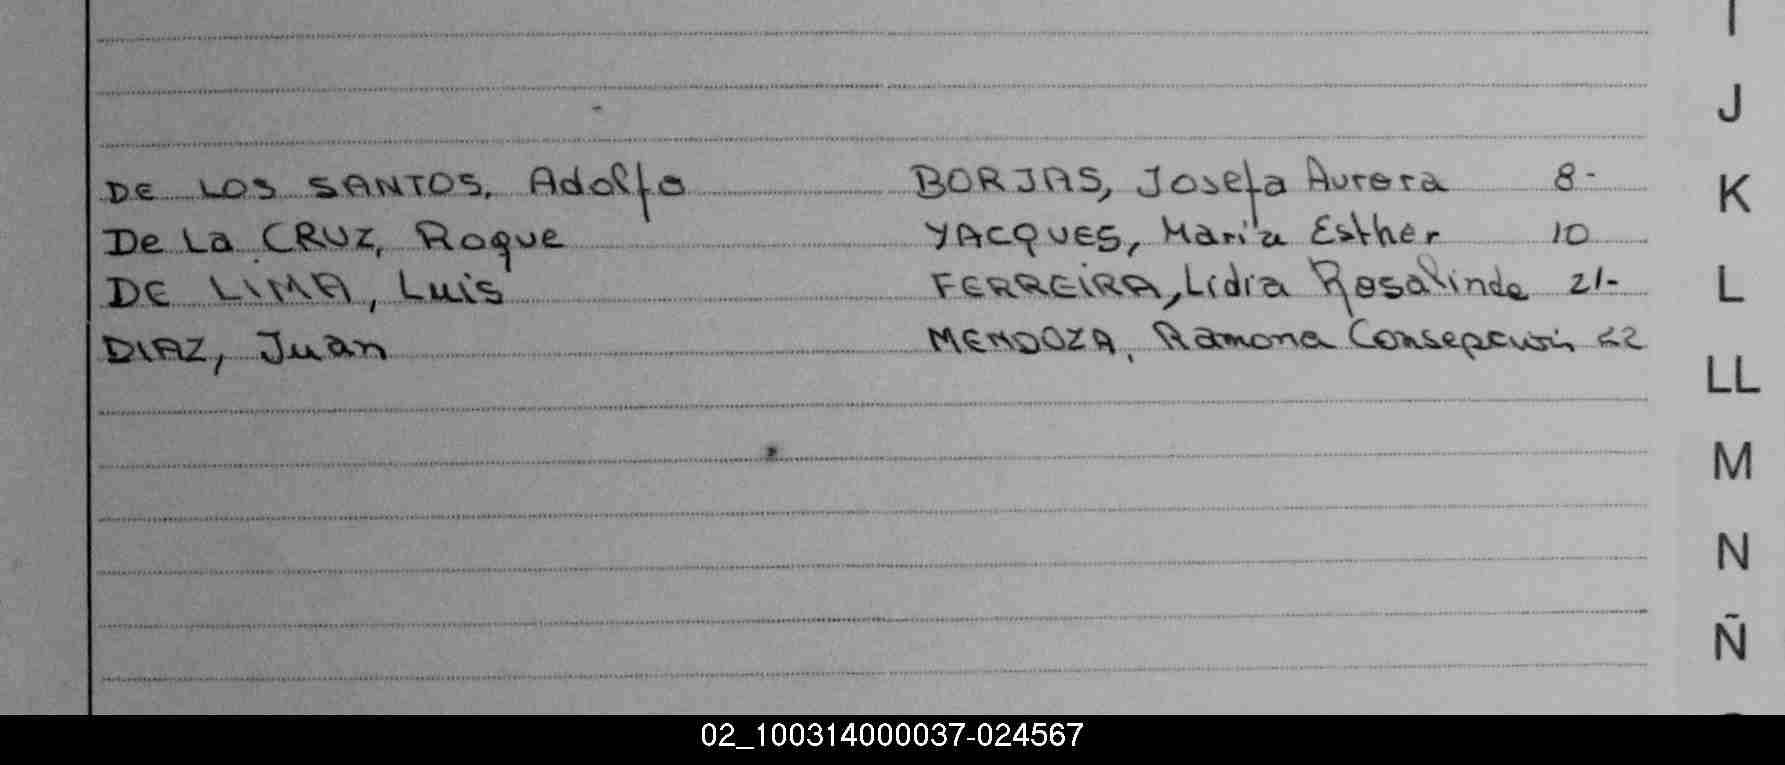 I
J
DE LOS SANTOS, Adolfo BORJAS, Josefa Aurora 8-
K
De La CRUZ, Roque YACQUES, Maria Esther 10
DE LIMA, Luis FERREIRA, Lidia Rosalinde 21-
L
DIAZ, Juan MENDOZA, Ramona 22
LL
M
N
Ñ
02_100314000037-024567